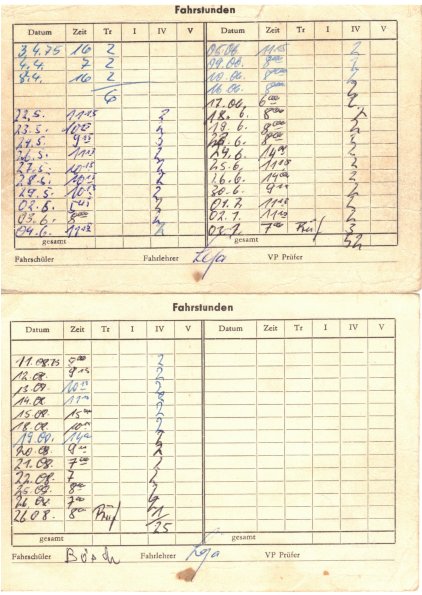 Fahrstunden
Datum Zeit Tr I IV V Datum Zeit Tr I IV V
3.4.75 16 2 05.06. 11 15 2
4.4. 7 2 09.06. 8 00 2
8.4. 16 2 10.06. 8 00 2
6 16.06. 8 00 2
17.06. 6 00 2
22.5. 11 15 2 18.6. 8 00
23.5. 10 2 19.6. 8 00 2
27.5. 9 15 2 6. 8 00 2
26.5. 11 15 2 24.6. 14 00 2
27.5. 10 15 2 25.6. 11 15 2
28.5. 10 15 2 26.6. 14 00 2
29.5. 10 15 2 30.6. 9 15 2
02.6. 2 01.7. 11 15 2
03.6. 8 00 2 02.7. 11 15 2
04.6. 11 15 2 03.7. 7 00 Prüf 3
gesamt gesamt 52
Fahrschüler Fahrlehrer VP Prüfer
Fahrstunden
Datum Zeit Tr I IV V Datum Zeit Tr I IV V
11.08.75 8 00 2
12.08. 9 15 2
13.08. 10 15 2
14.08. 11 15 2
15.08. 15 00 2
18.08. 10 15 2
19.08. 14 00 2
20.08. 9 15 2
21.08. 7 00 2
22.08. 7 2
25.08. 8 00 2
26.08. 7 00 2
26.08. 8 00 Prüf 1
25
gesamt gesamt
Fahrschüler Fahrlehrer VP Prüfer